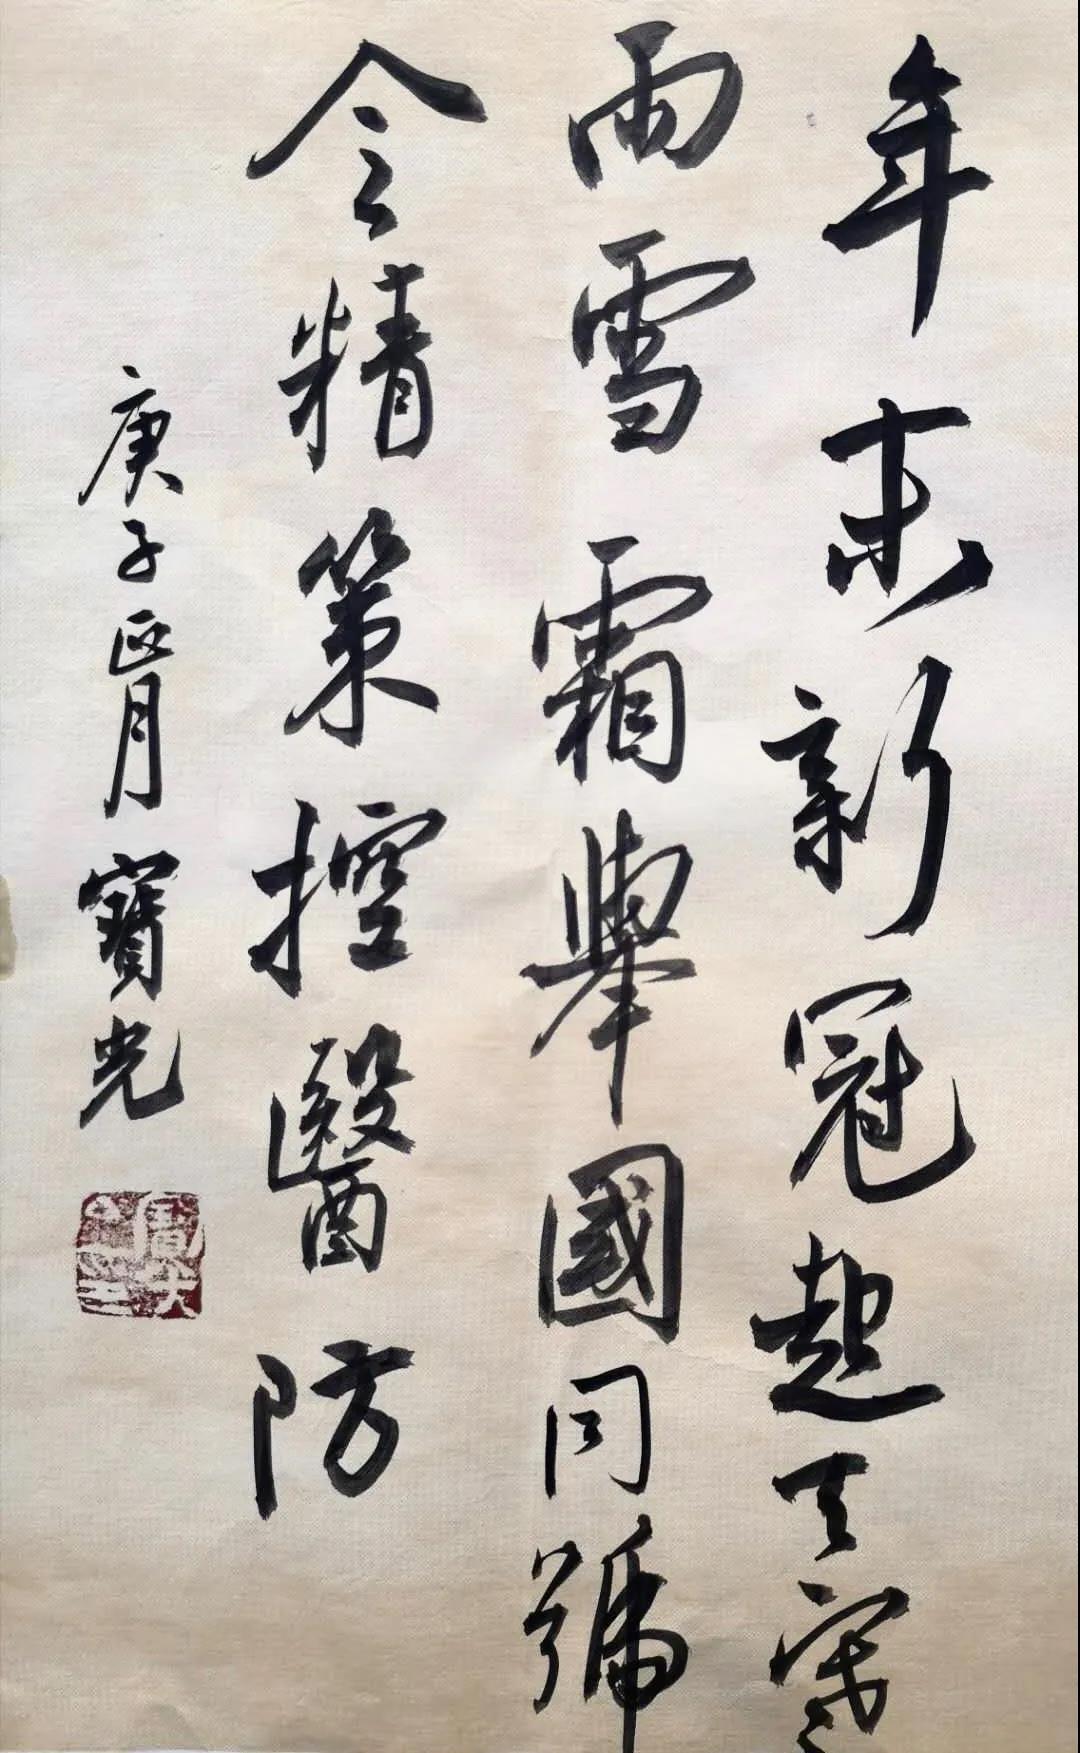 年末新冠起天寒
雨雪霜舉國同號
令精策控醫防
庚子正月寶光